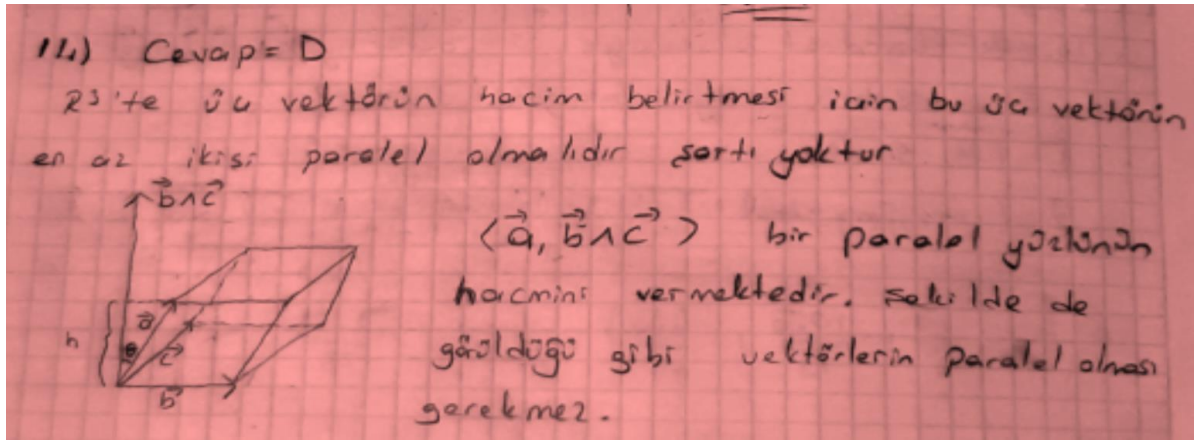 14) Cevap = D
R3'te üç vektörün hacim belirtmesi için bu üç vektörün
en az ikisi paralel olmalıdır şartı yoktur
b⃗∧c⃗
⟨a⃗, b⃗∧c⃗⟩ bir paralel yüzlünün
hacmini vermektedir. Şekilde de
görüldüğü gibi vektörlerin paralel olması
gerekmez.
h
a⃗
θ
c⃗
b⃗